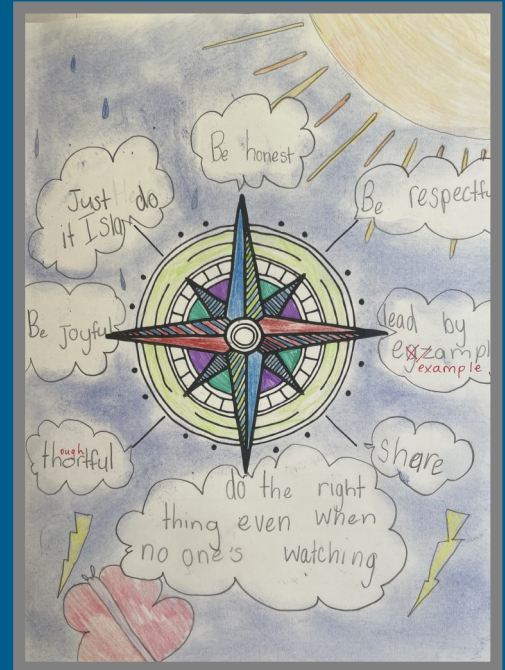 Be honest
Just do
it Islam
Be respectfu
Be Joyful
lead by
exzampl
example
ough
thortful
share
do the right
thing even when
no one's watching